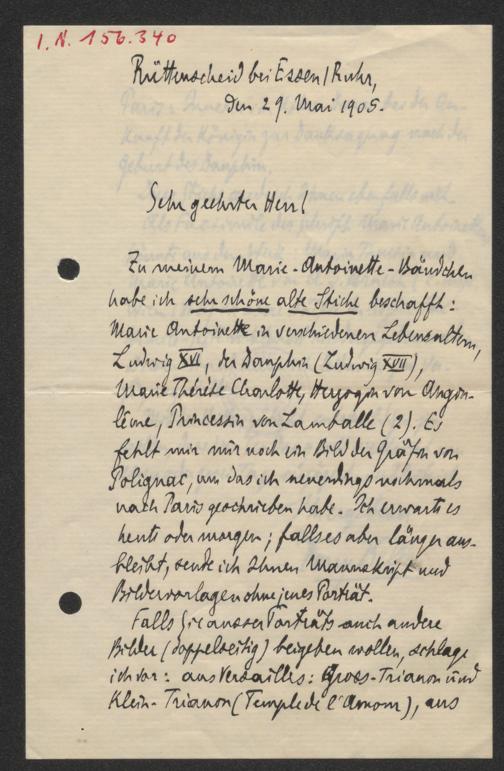 I. N. 156.340
Rüttenscheid bei Essen/Ruhr,
den 29. Mai 1905.
Sehr geehrter Herr!
Zu meinem Marie-Antoinette-Bändchen
habe ich sehr schöne alte Stiche beschafft:
Marie Antoinette in verschiedenen Lebensaltern,
Ludwig XVI, der Dauphin (Ludwig XVII),
Marie Thérèse Charlotte, Herzogin von Angou-
lême, Princessin von Lamballe (2). Es
fehlt mir nur noch ein Bild der Gräfin von
Polignac, um das ich neuerdings nochmals
nach Paris geschrieben habe. Ich erwarte es
heut oder morgen; falls es aber länger aus-
bleibt, sende ich Ihnen Manuskript und
Bildervorlagen ohne jenes Porträt.
Falls Sie ausser Porträts auch andere
Bilder (doppelseitig) beigeben wollen, schlage
ich vor: aus Versailles: Gross-Trianon und
Klein-Trianon (Temple de l'Amour), aus